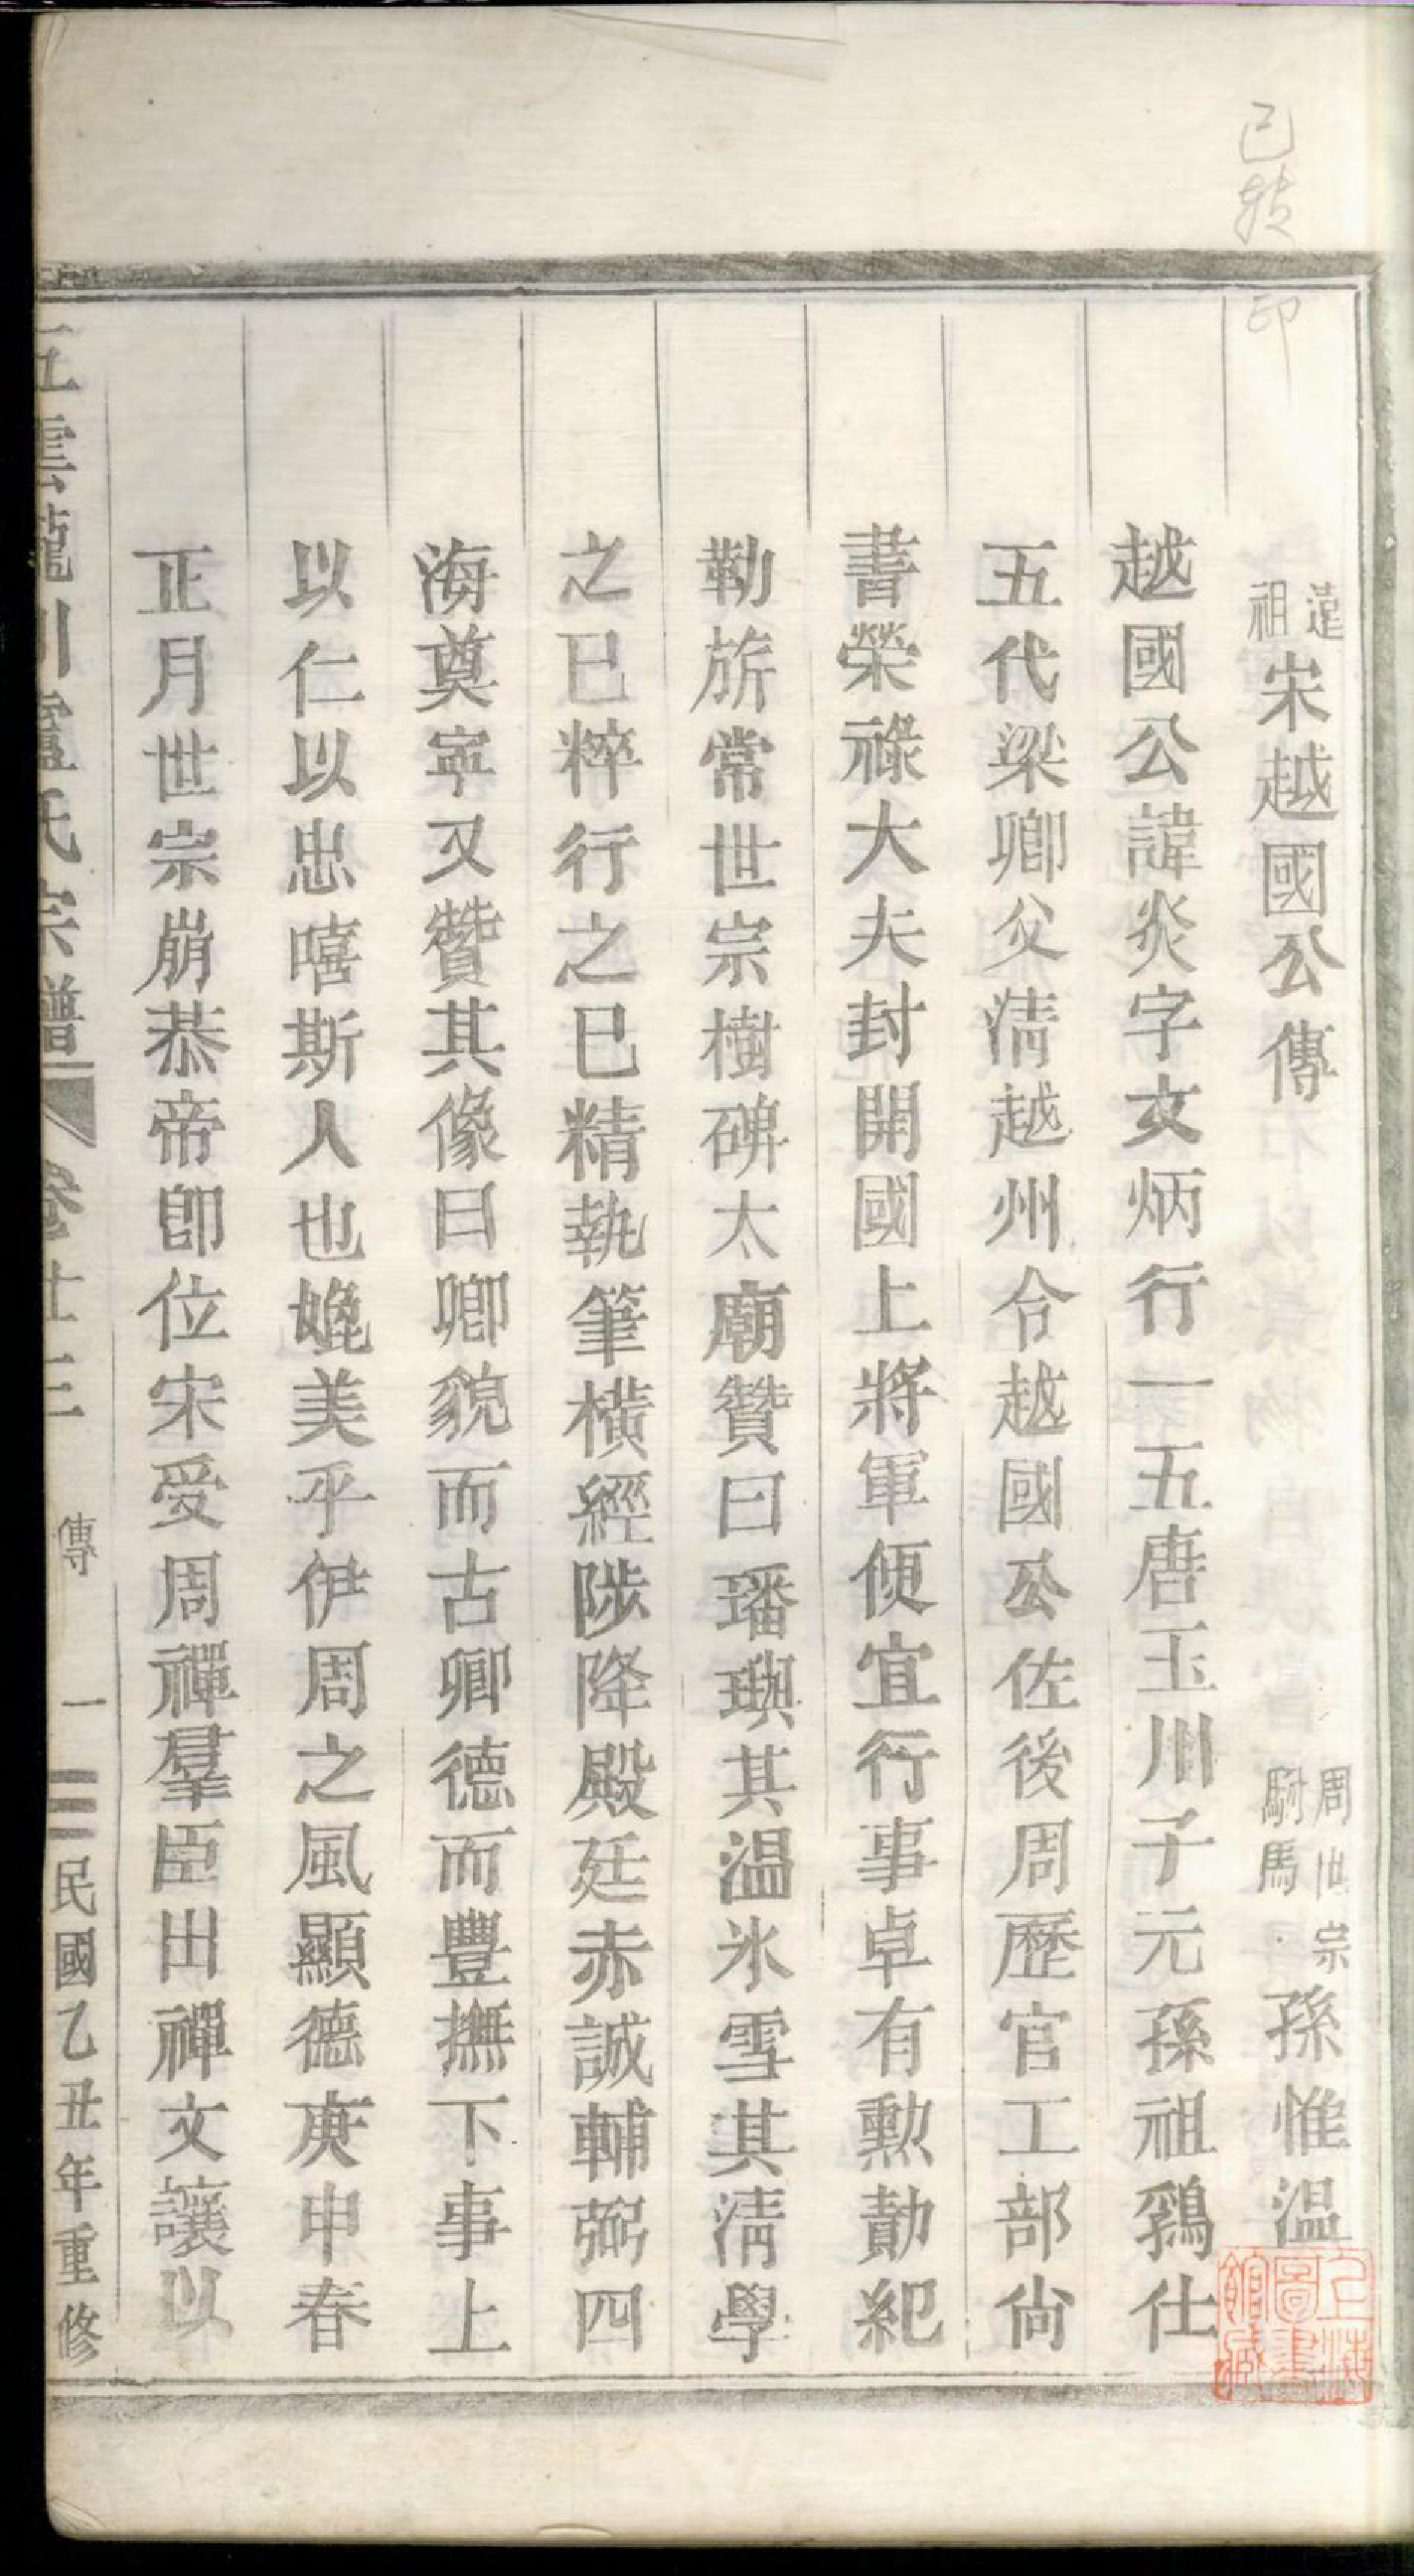 已转
印
遠祖宋越國公傳 周世宗駙馬 孫惟温
越國公諱炎字文炳行一五唐玉川子元孫祖鶏仕
五代梁卿父清越州令越國公佐後周歷官工部尙
書榮祿大夫封開國上將軍便宜行事卓有勲勣紀
勒旂常世宗樹碑太廟贊曰璠璵其温氷雪其清學
之已粹行之已精執筆横經陟降殿廷赤誠輔弼四
海奠寜又贊其像曰卿貌而古卿德而豐撫下事上
以仁以忠嘻斯人也媲美乎伊周之風顯德庚申春
正月世宗崩恭帝卽位宋受周禪羣臣出禪文讓以
五雲龍川盧氏宗譜 卷廿三 傳 一 民國乙丑年重修
上海圖書館藏